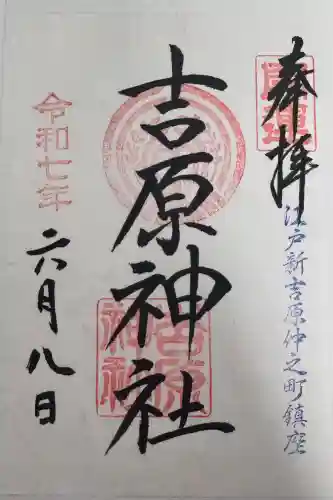 奉拝
開運
江戸新吉原仲之町鎮座
吉原神社
吉原神社
令和七年
六月八日